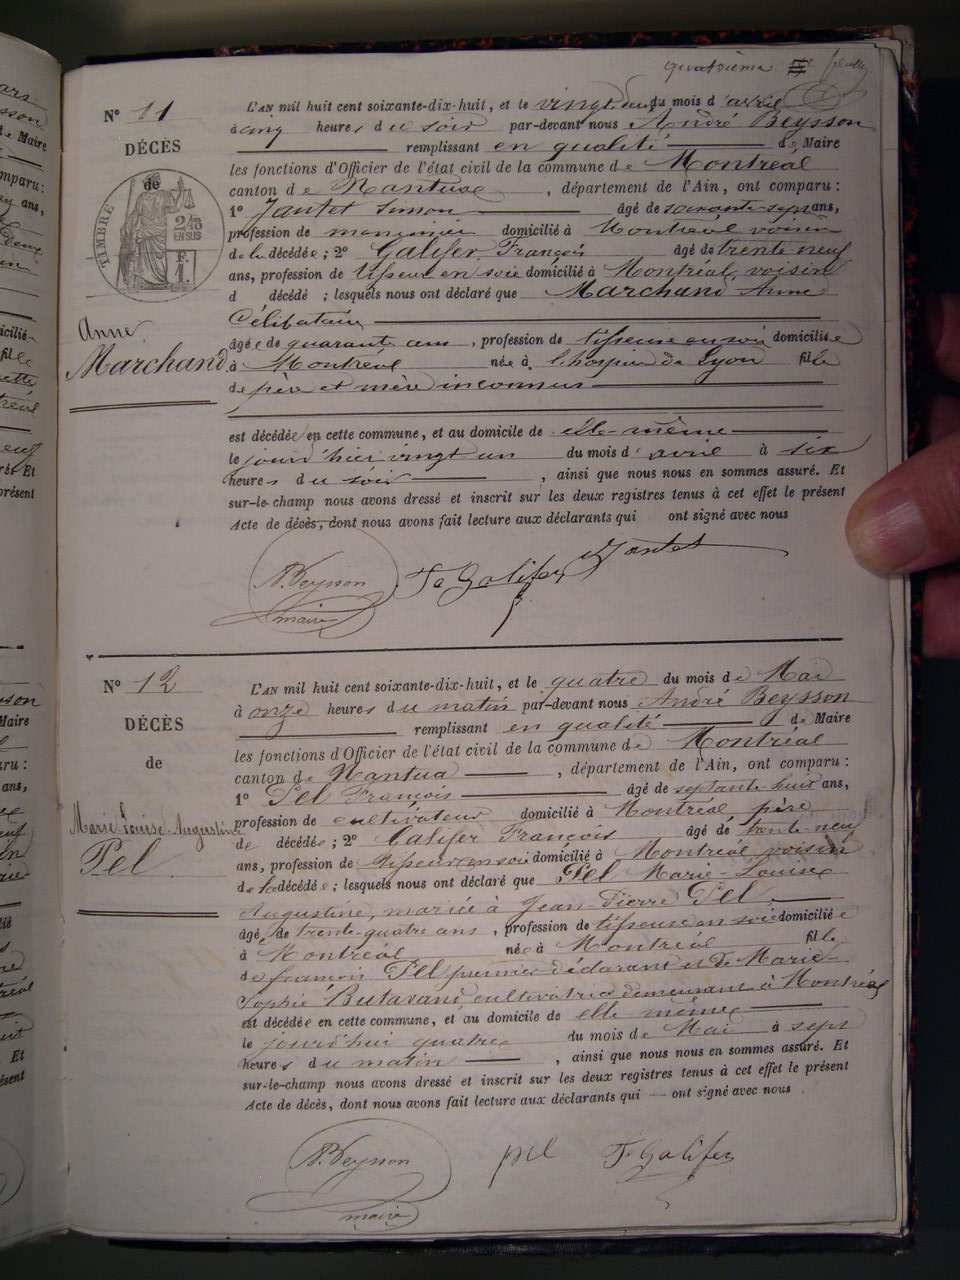 quatrième
N° 11
DÉCÈS
de
TIMBRE
2/10
EN SUS
F.
1.
Anne
Marchand
L'AN mil huit cent soixante-dix-huit, et le vingt deux du mois d'avril
à cinq heures du soir par-devant nous André Beysson
remplissant en qualité de Maire
les fonctions d'Officier de l'état civil de la commune de Montréal
canton de Nantua, département de l'Ain, ont comparu :
1° Jantet Simon âgé de soixante-sept ans,
profession de menuisier domicilié à Montréal voisin
de la décédée ; 2° Galifer François âgé de trente neuf
ans, profession de tisseur en soie domicilié à Montréal, voisin
d décédé ; lesquels nous ont déclaré que Marchand Anne
Célibataire
âgée de quarante ans, profession de tisseuse en soie domiciliée
à Montréal née à l'hospice de Lyon fille
de père et mère inconnus
est décédée en cette commune, et au domicile de elle-même
le jour d'hier vingt un du mois d'avril à six
heures du soir, ainsi que nous nous en sommes assuré. Et
sur-le-champ nous avons dressé et inscrit sur les deux registres tenus à cet effet le présent
Acte de décès, dont nous avons fait lecture aux déclarants qui ont signé avec nous
A. Beysson
maire
F Galifer
S Jantet
N° 12
DÉCÈS
de
Marie-Louise-Augustine
Pel
L'AN mil huit cent soixante-dix-huit, et le quatre du mois de Mai
à onze heures du matin par-devant nous André Beysson
remplissant en qualité de Maire
les fonctions d'Officier de l'état civil de la commune de Montréal
canton de Nantua, département de l'Ain, ont comparu :
1° Pel François âgé de septante-huit ans,
profession de cultivateur domicilié à Montréal, père
de décédée ; 2° Galifer François âgé de trente-neuf
ans, profession de tisseur en soie domicilié à Montréal voisin
de la décédée ; lesquels nous ont déclaré que Pel Marie-Louise
Augustine, mariée à Jean-Pierre Pel,
âgée de trente-quatre ans, profession de tisseuse en soie domiciliée
à Montréal née à Montréal fille
de françois Pel premier déclarant et de Marie-
Sophie Butavand cultivatrice demeurant à Montréal
est décédée en cette commune, et au domicile de elle même
le jourd'hui quatre du mois de Mai à sept
heures du matin, ainsi que nous nous en sommes assuré. Et
sur-le-champ nous avons dressé et inscrit sur les deux registres tenus à cet effet le présent
Acte de décès, dont nous avons fait lecture aux déclarants qui — ont signé avec nous
A. Beysson
maire
pel
F Galifer